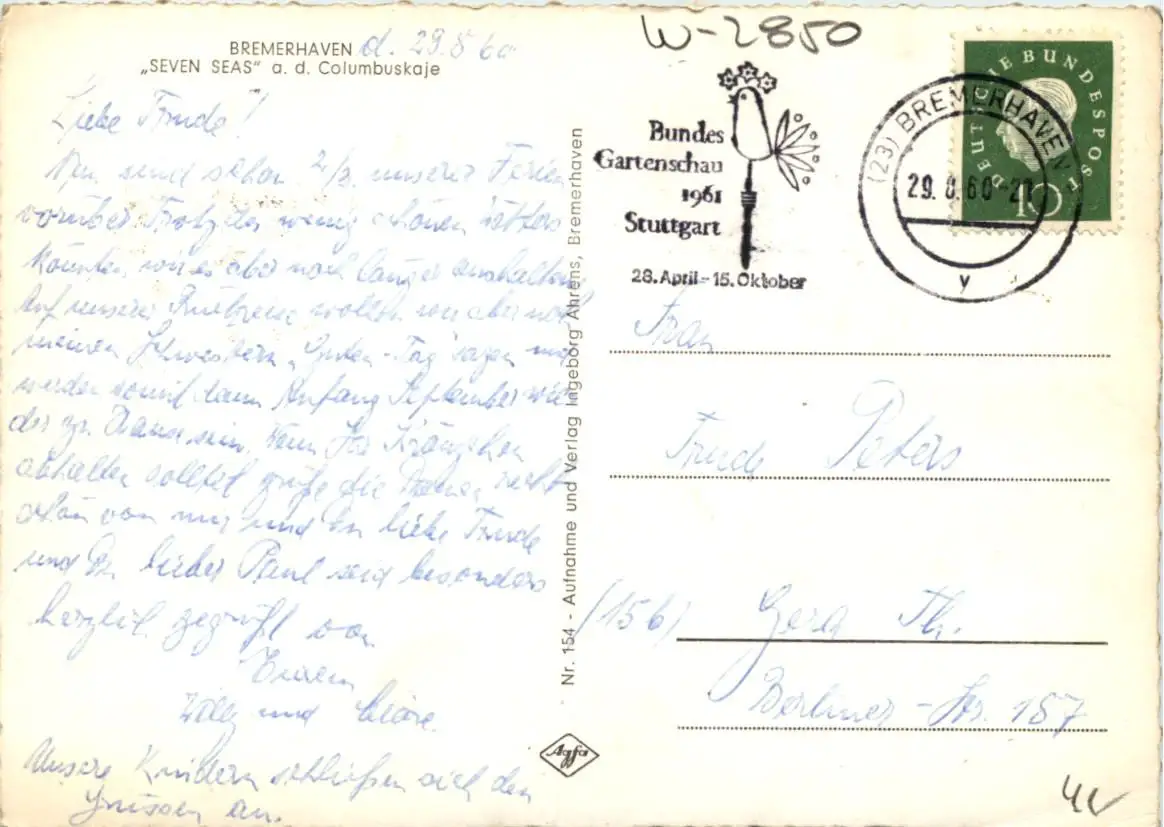 BREMERHAVEN d. 29.8.60
„SEVEN SEAS" a. d. Columbuskaje
Liebe Trude!
Nun sind schon 2/3 unserer Ferien
vorüber. Trotz des wenig schönen Wetters
könnten wir es aber noch länger aushalten.
Auf unserer Rückreise wollen wir aber noch
meinen Schwestern „Guten-Tag" sagen und
werden somit dann Anfang September wie-
der zu Hause sein. Wenn Ihr Kränzchen
abhalten solltet grüße die Damen recht
schön von mir und Du liebe Trude
und Du lieber Paul seid besonders
herzlich gegrüßt von
Euren
Willy und
Unsere Kindern schließen sich den
Grüssen an.
Nr. 154 - Aufnahme und Verlag Ingeborg Ahrens, Bremerhaven
Agfa
W-2850
Bundes
Gartenschau
1961
Stuttgart
28. April - 15. Oktober
(23) BREMERHAVEN
29.8.60-21
y
DEUTSCHE BUNDESPOST
10
Frau
Trude Peters
(15b) Gera Th.
Berliner-Str. 157